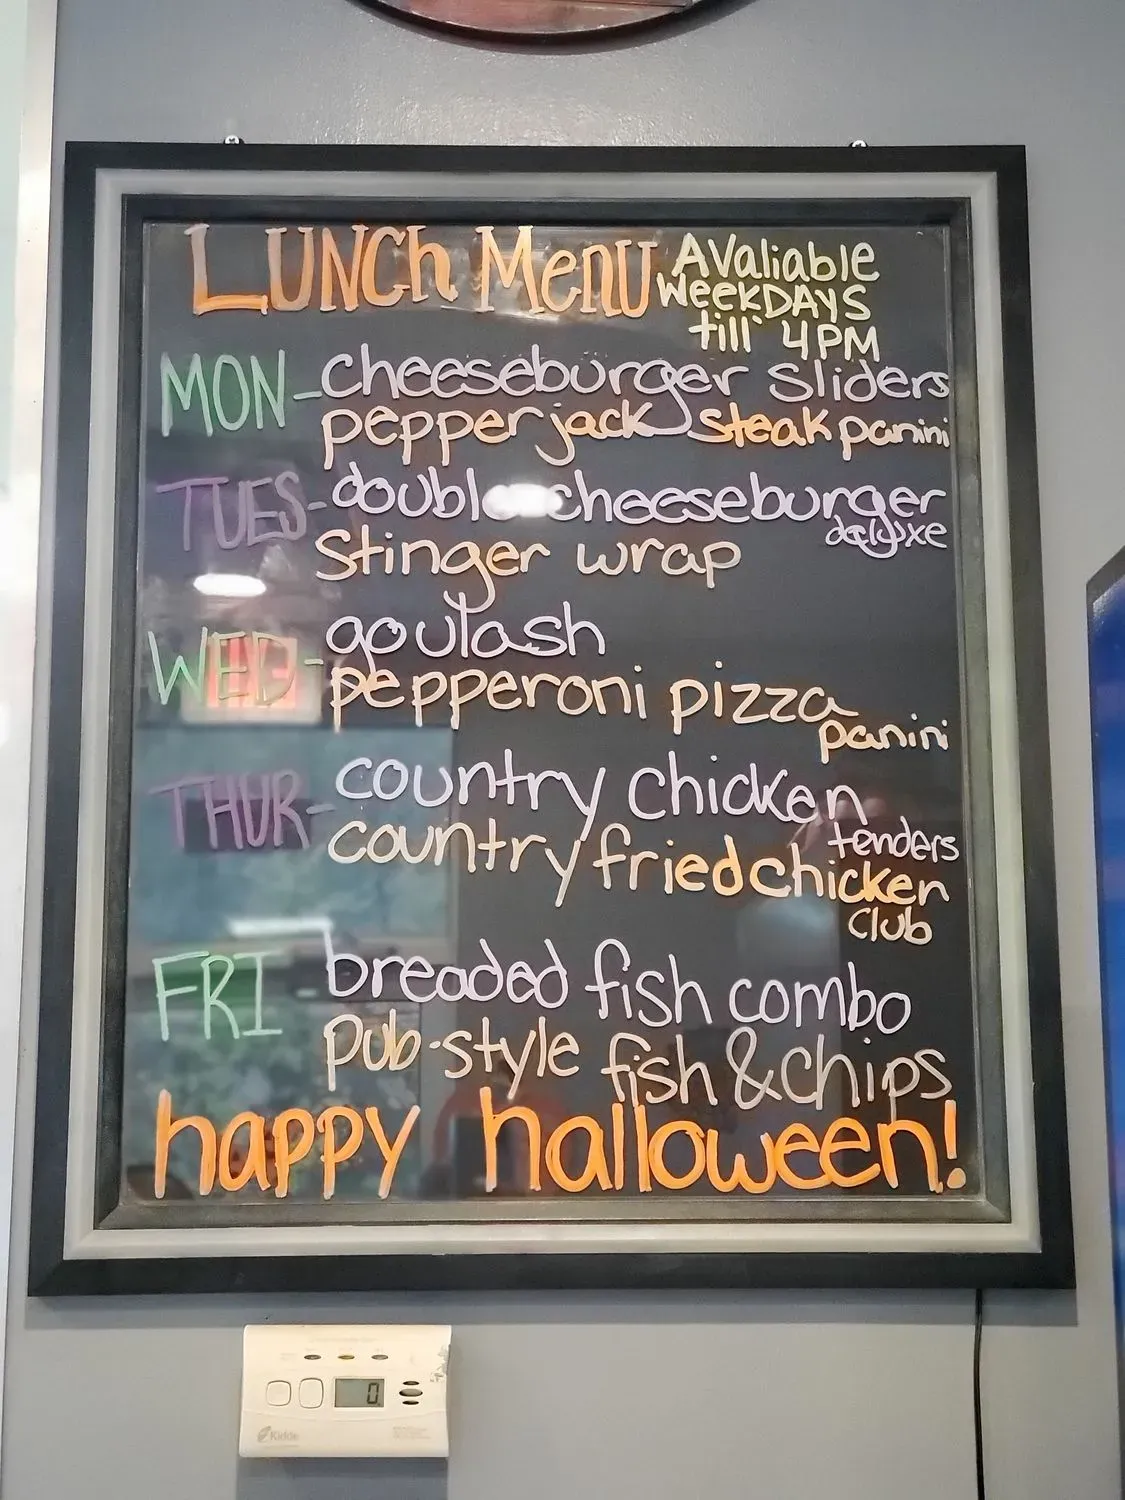 LUNCh MenU AValiable
WeekDAYS
till 4PM
MON - cheeseburger sliders
pepper jack steak panini
TUES - double cheeseburger
deluxe
Stinger wrap
WED - goulash
pepperoni pizza
panini
THUR - country chicken
tenders
country fried chicken
Club
FRI breaded fish combo
pub-style fish & chips
happy halloween!
0
Kidde